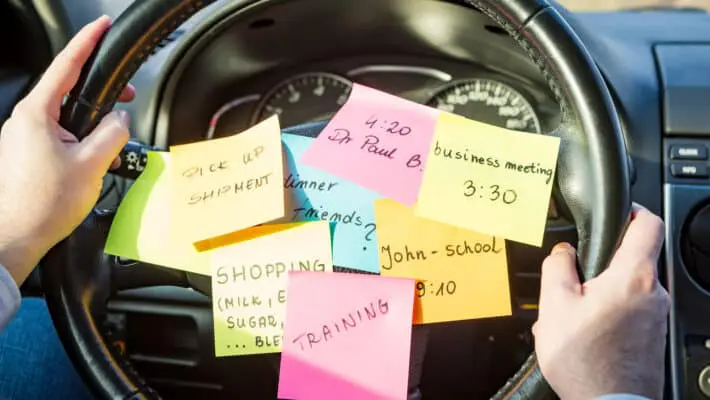 PICK UP
SHIPMENT
dinner
friends?
4:20
Dr Paul B.
business meeting
3:30
John - school
9:10
SHOPPING
(MILK, E
SUGAR,
... BLE
TRAINING
INFO